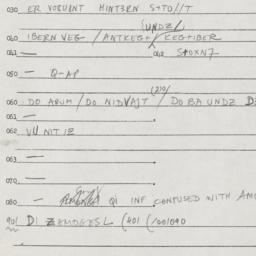 030 ER VORUINT HINT3ER S+TO//T
(UNDZ/
040 IBERN VEG / ANTKEG+ / KEG+IBER
041 — 042 S+OXN7
050 — Q-AP
(210/
060 DO ARUM / DO NIDVAJT / DO BA UNDZ
061 —
062 VU NIT IZ
063 —
070 —
080 — QI INF CONFUSED WITH
901 DI ZAMDGESL (401 (/001090